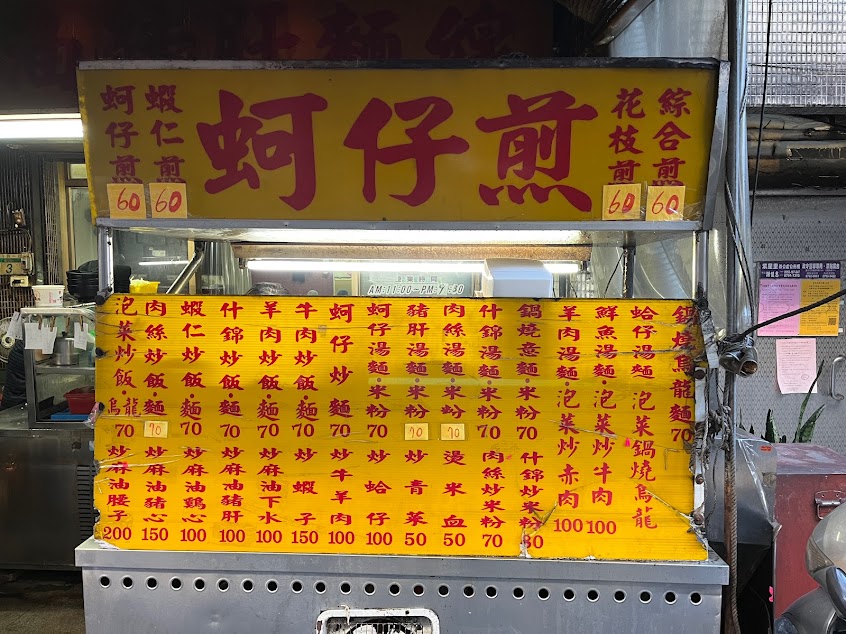 蚵仔煎
60
蝦仁煎
60
蚵仔煎
花枝煎
60
綜合煎
60
泡菜炒飯烏龍
70
肉絲炒飯·麵
70
蝦仁炒飯·麵
70
什錦炒飯·麵
70
羊肉炒飯·麵
70
牛肉炒飯·麵
70
蚵仔炒麵
70
蚵仔湯麵·米粉
70
豬肝湯麵·米粉
70
肉絲湯麵·米粉
70
什錦湯麵·米粉
70
鍋燒意麵·米粉
70
羊肉湯麵·泡菜炒赤肉
100
鮮魚湯麵·泡菜炒牛肉
100
蛤仔湯麵 泡菜鍋燒烏龍
鍋燒烏龍麵
70
炒麻油腰子
200
炒麻油豬心
150
炒麻油鷄心
100
炒麻油豬肝
100
炒麻油下水
100
炒蝦子
150
炒牛羊肉
100
炒蛤仔
100
炒青菜
50
燙米血
50
肉絲炒米粉
70
什錦炒米粉
80